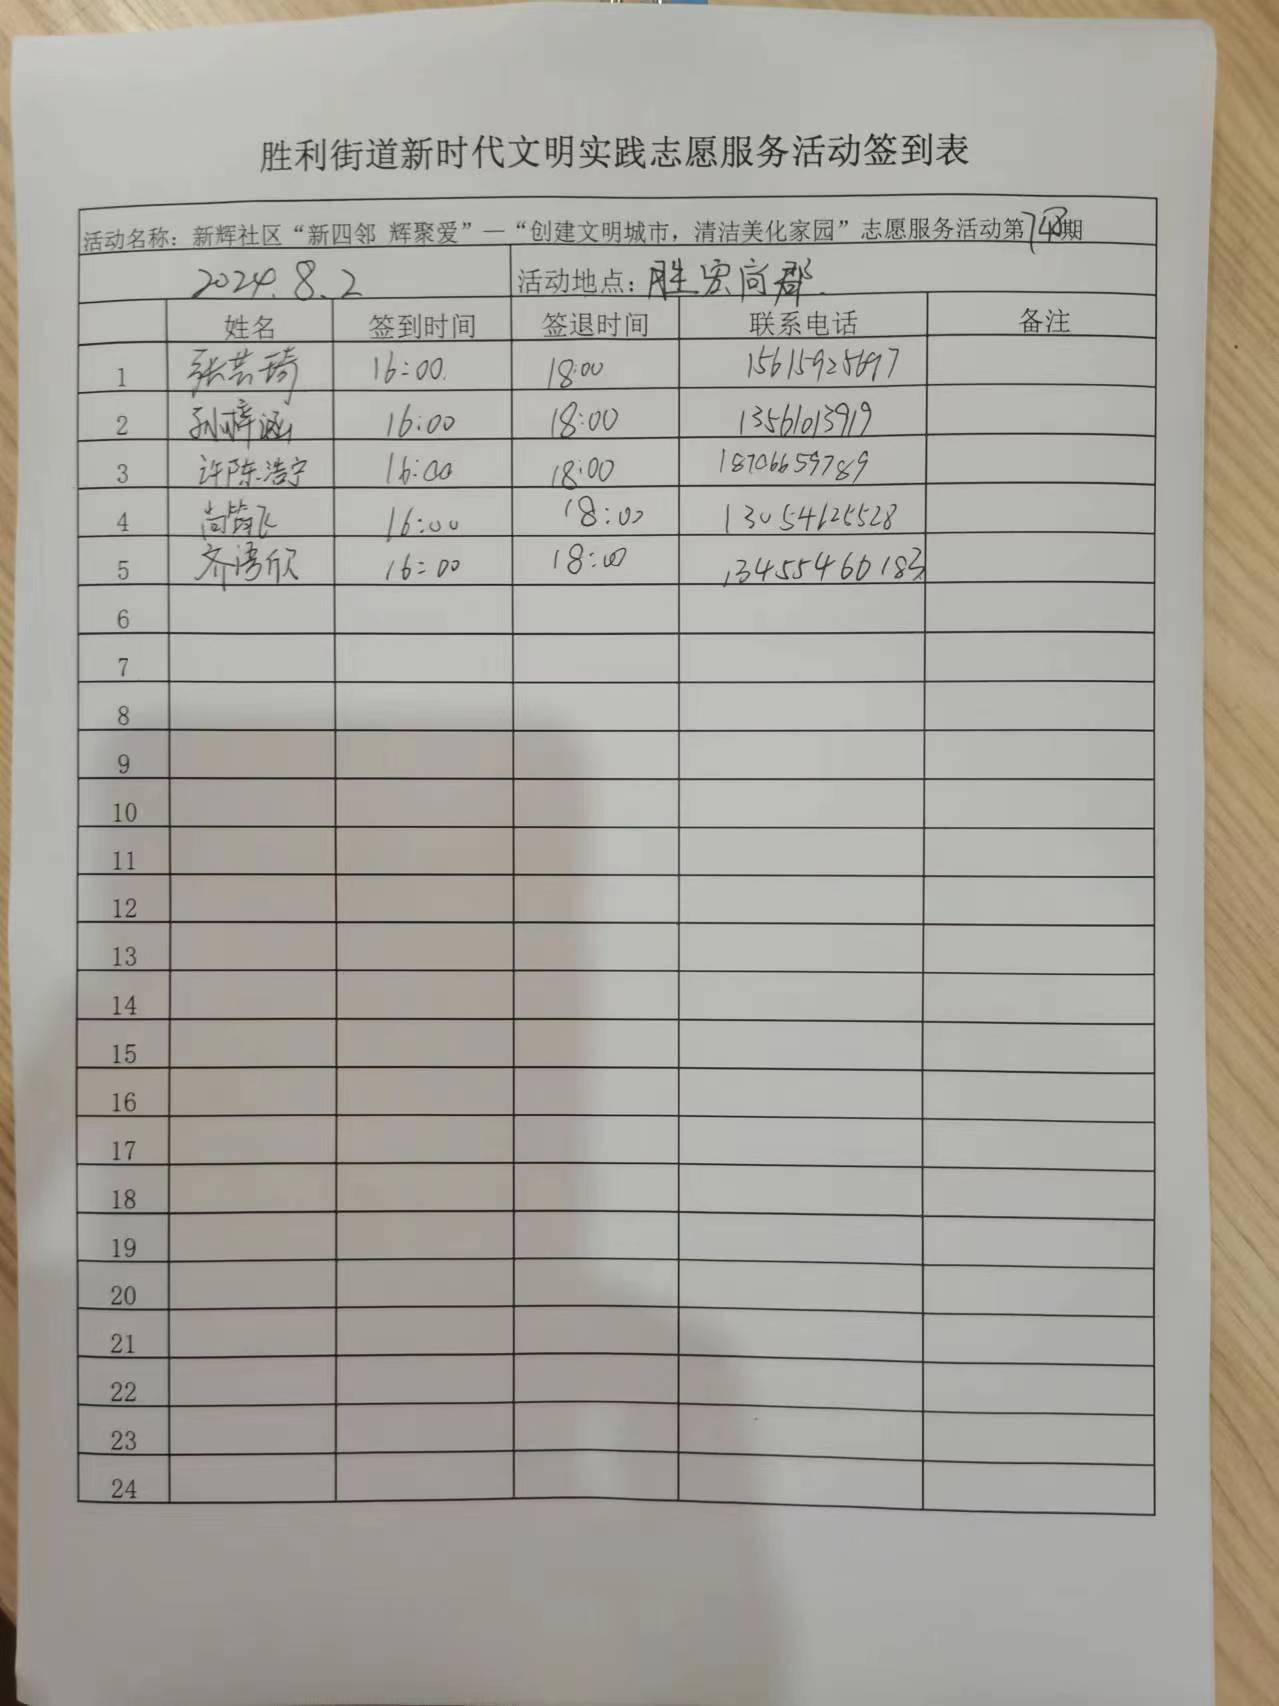 胜利街道新时代文明实践志愿服务活动签到表
活动名称：新辉社区“新四邻 辉聚爱”—“创建文明城市，清洁美化家园”志愿服务活动第748期
2024.8.2 活动地点：胜宏尚郡
姓名 签到时间 签退时间 联系电话 备注
1 张芸琦 16:00 18:00
2 孙梓涵 16:00 18:00 13561013919
3 许陈浩宁 16:00 18:00 18706659789
4 16:00 18:00 13054625528
5 16:00 18:00 13455460183
6
7
8
9
10
11
12
13
14
15
16
17
18
19
20
21
22
23
24